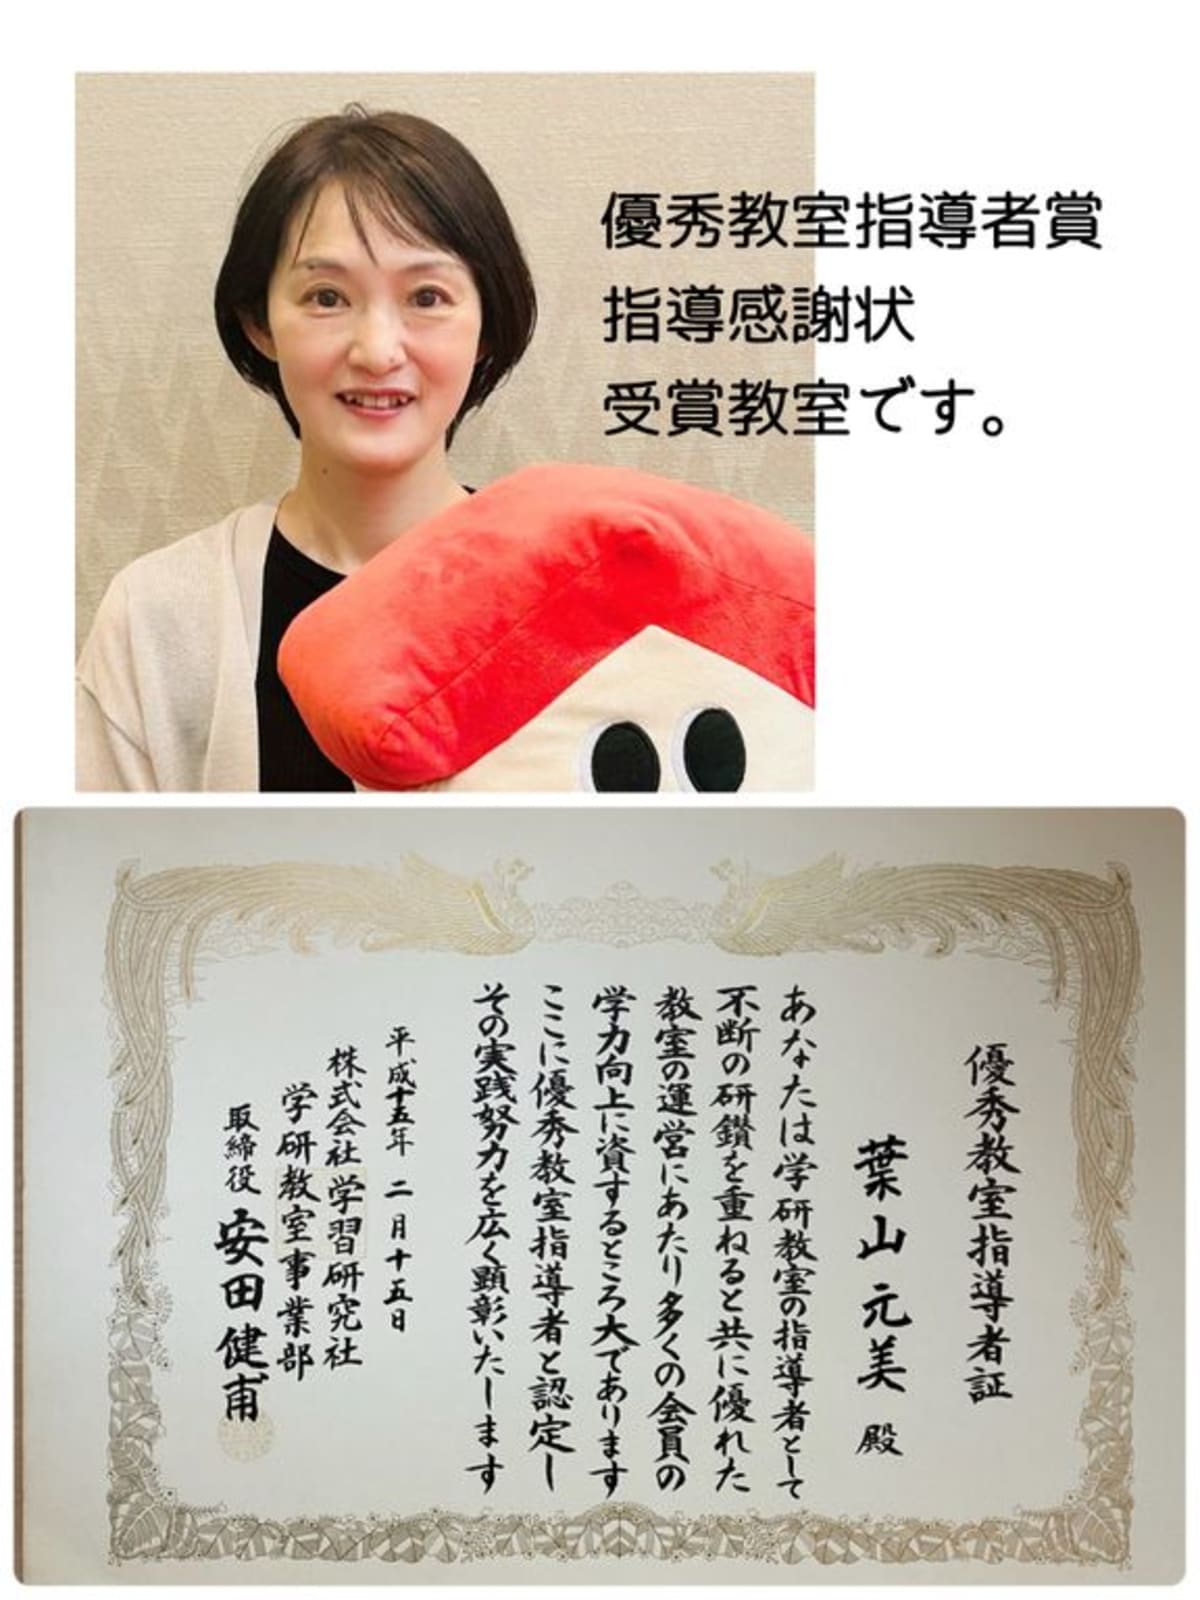 優秀教室指導者賞
指導感謝状
受賞教室です。
優秀教室指導者証
葉山元美 殿
あなたは学研教室の指導者として
不断の研鑽を重ねると共に優れた
教室の運営にあたり多くの会員の
学力向上に資するところ大であります
ここに優秀教室指導者と認定し
その実践努力を広く顕彰いたします
平成十五年 二月十五日
株式会社 学習研究社
学研教室事業部
取締役 安田健甫